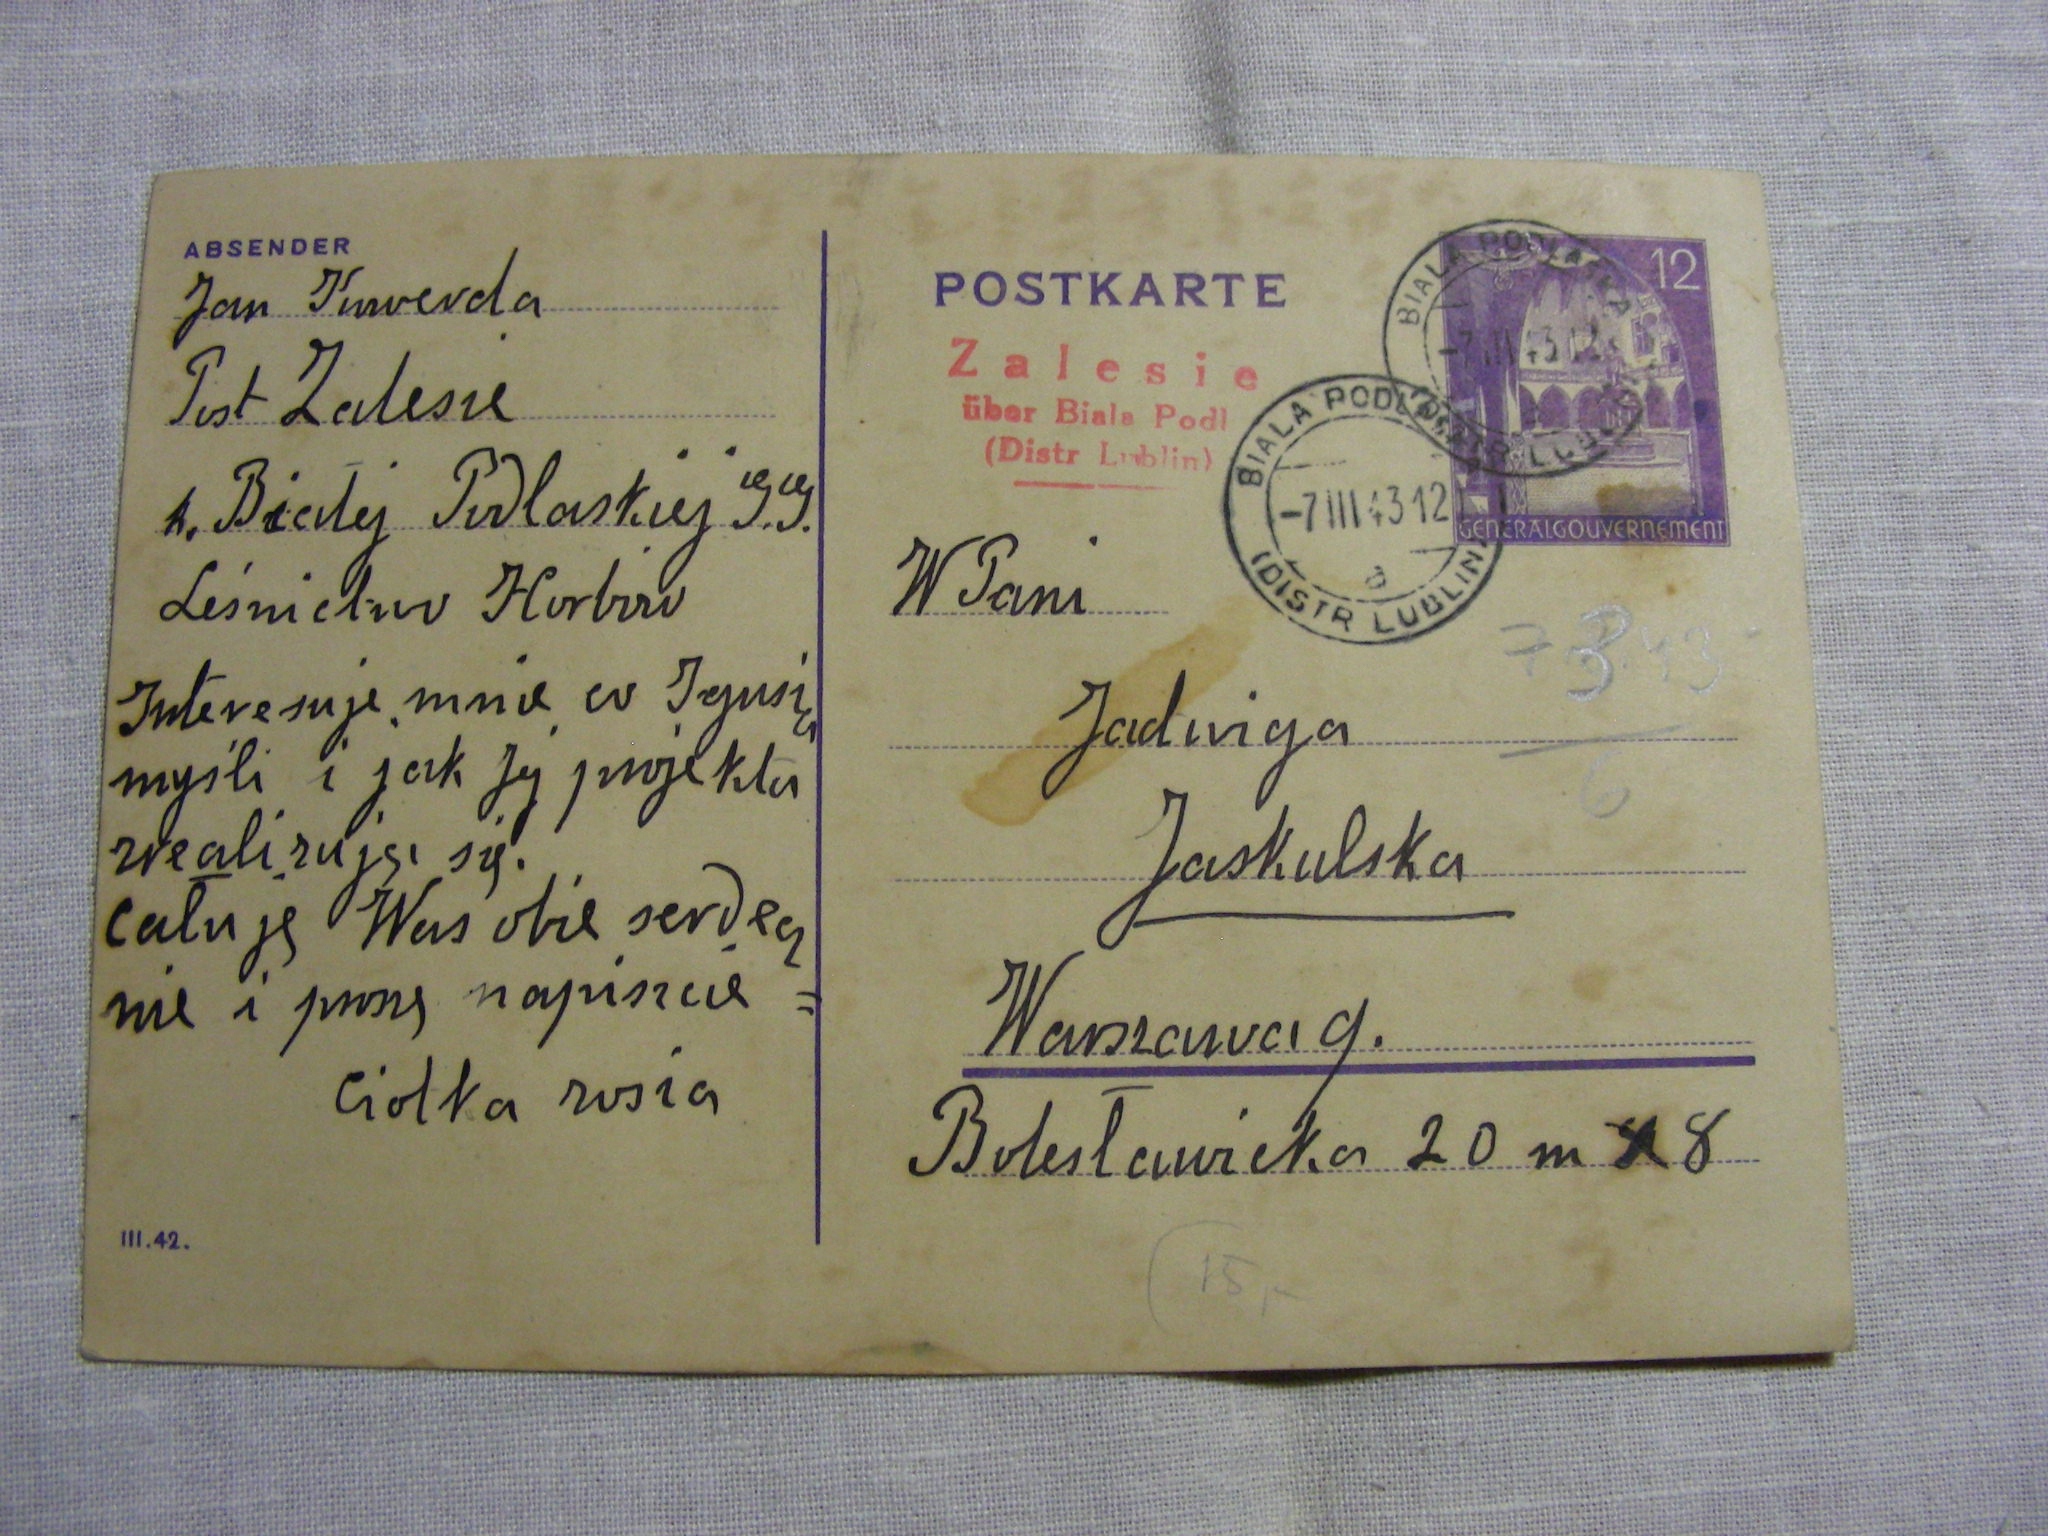 ABSENDER
Jan Kuwerda
Post Zalesie
k. Białej Podlaskiej G.G.
Leśnictwo Horbów
Interesuje mnie co Igusia
myśli i jak jej projekta
realizują się.
Całuję Was obie serdecz
nie i proszę napiszcie =
Ciotka Zosia
III.42.
POSTKARTE
Zalesie
über Biala Podl
(Distr Lublin)
12
GENERALGOUVERNEMENT
BIALA PODLASKA
-7 III 43 12
(DISTR LUBLIN)
BIALA PODLASKA
-7 III 43 12
b
(DISTR LUBLIN)
W Pani
Jadwiga
Jaskulska
Warszawa 9.
Bolesławicka 20 m 8
7 3. 43
6
15,-